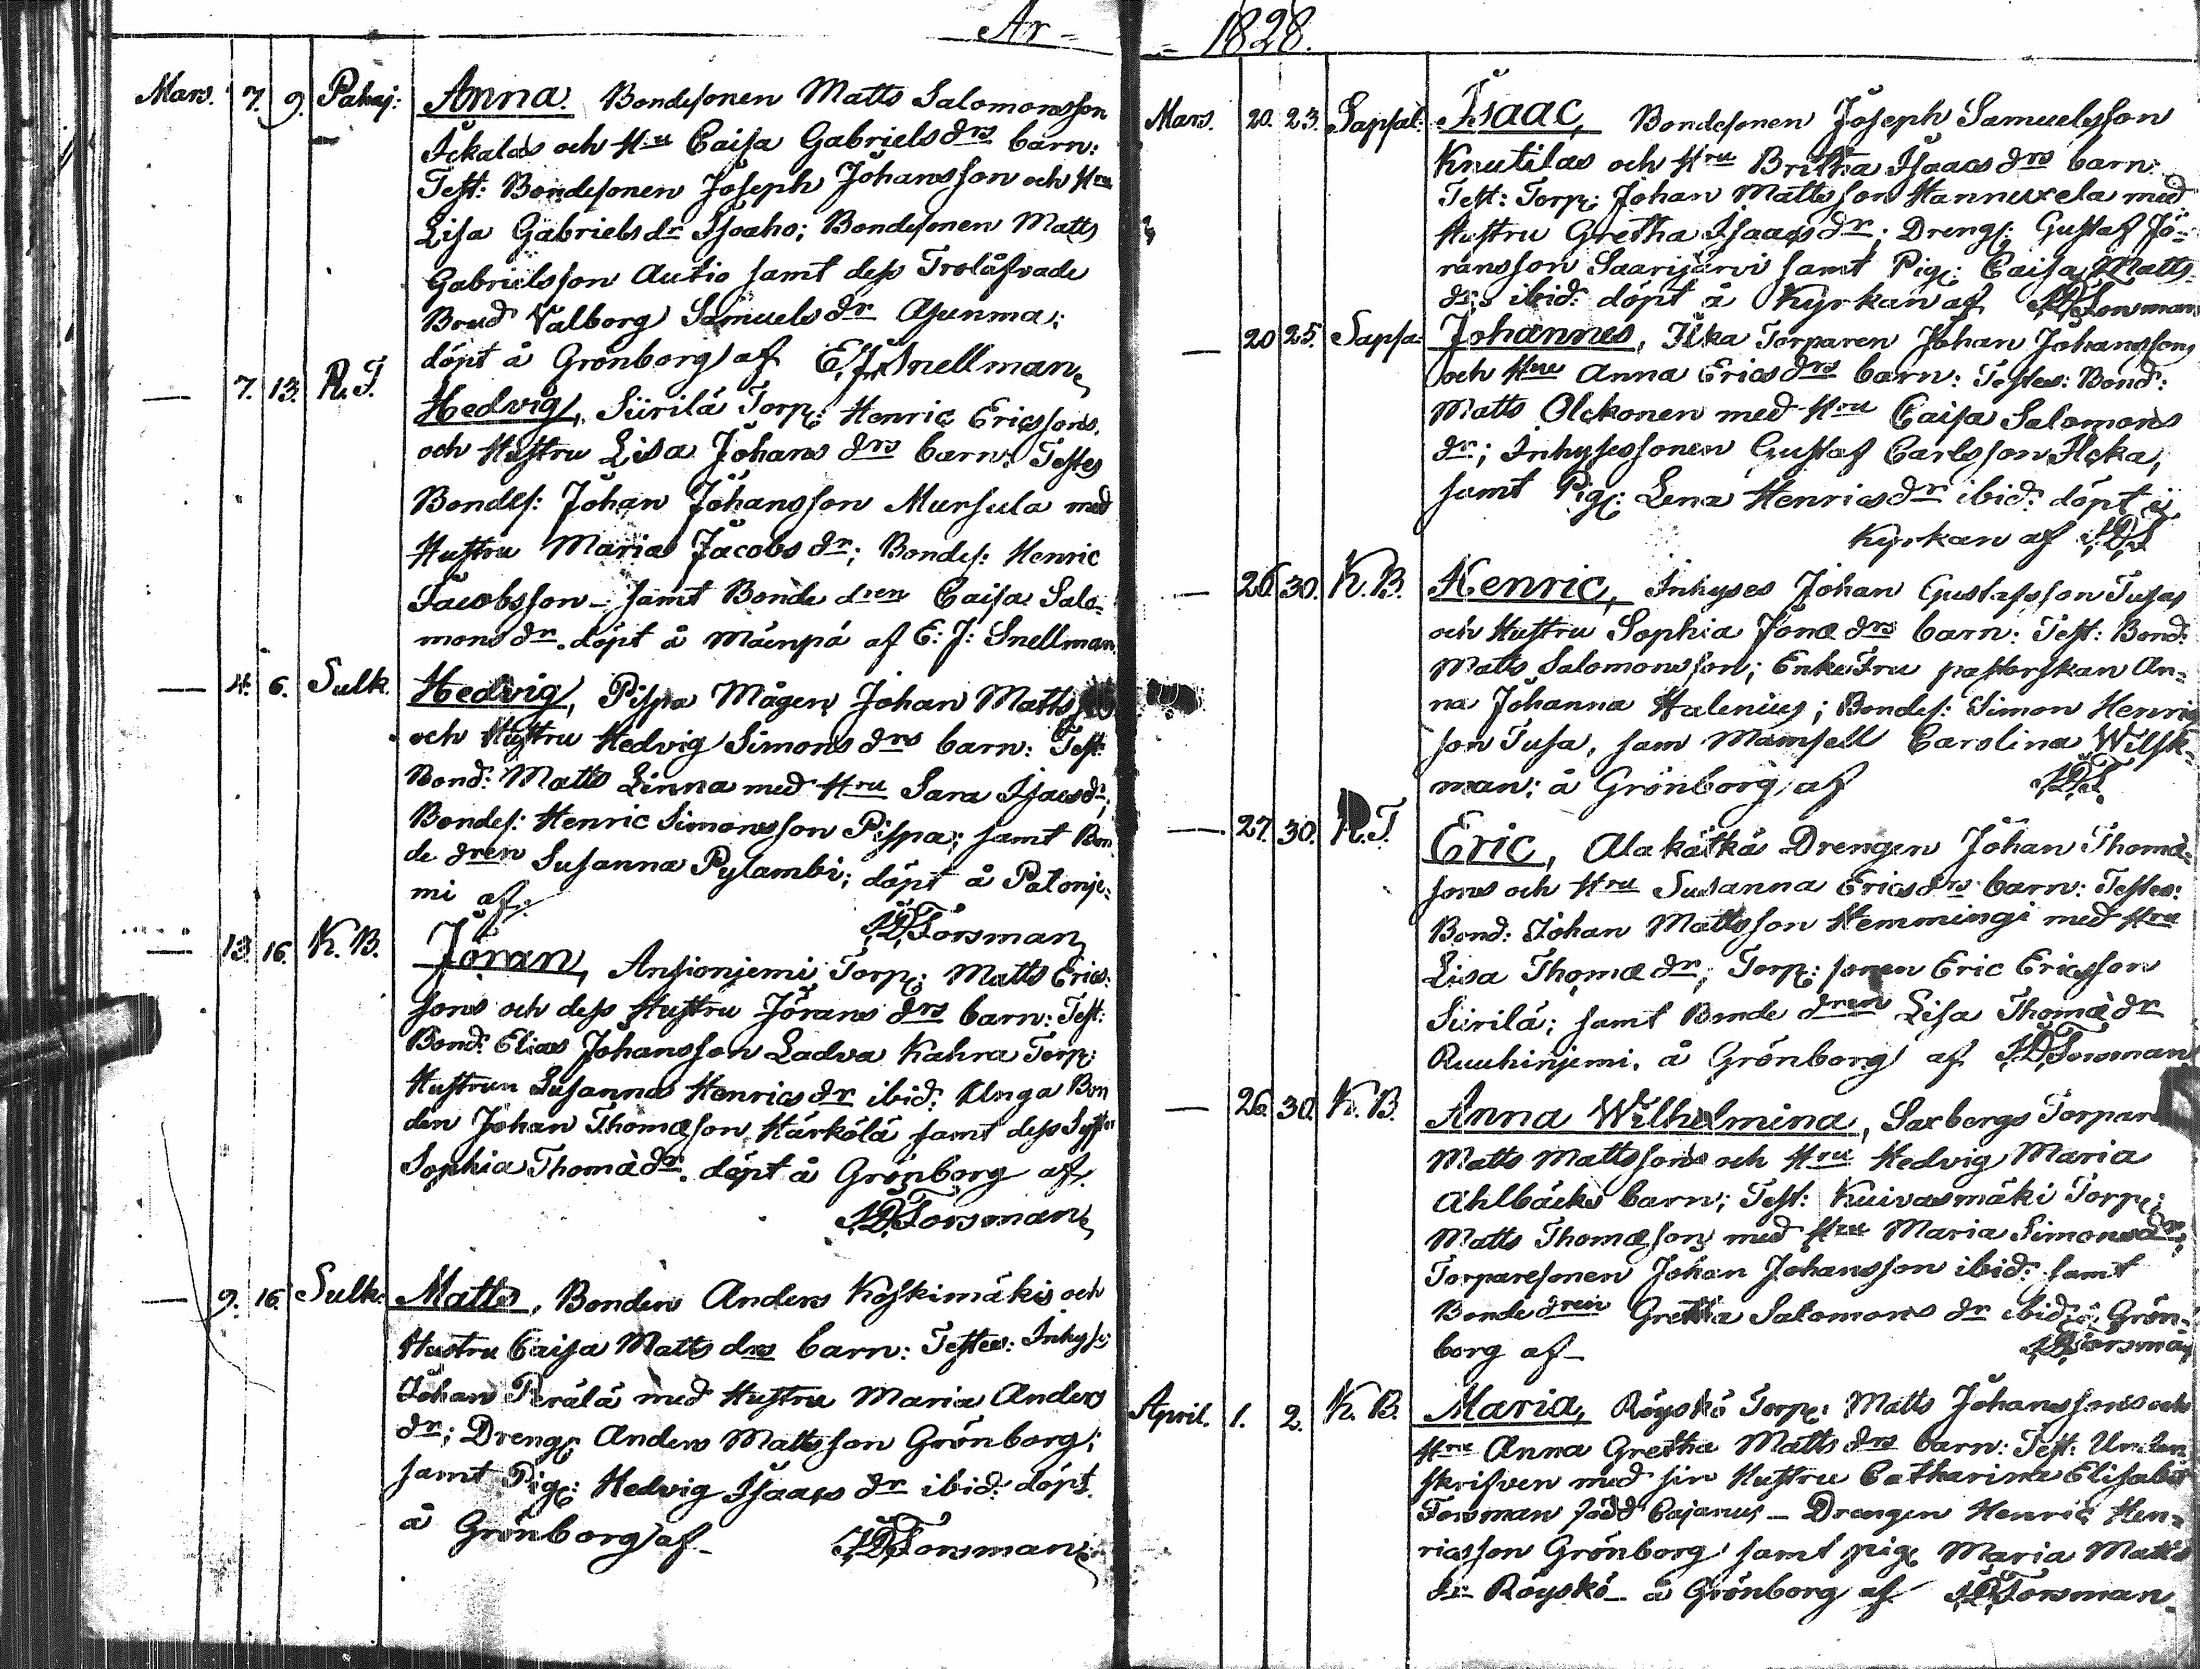 År = = 1828.
Mars. 7. 9. Pahaj: Anna. Bondesonen Matts Salomonsson
Ickalas och Hru Caisa Gabriels drs barn:
Test: Bondesonen Joseph Johansson och Hru
Lisa Gabriels dr Isoaho; Bondesonen Matts
Gabrielsson Autio samt dess Trolåfvade
Brud Valborg Samuels dr Asunma;
döpt å Grönborg af E. J. Snellman
— 7. 13. R. T. Hedvig, Siirilä Torp: Henric Ericssons
och Hustru Lisa Johans drs barn: Testes
Bondes: Johan Johansson Mursula med
Hustru Maria Jacobs dr; Bondes: Henric
Jacobsson – samt Bonde dren Caisa Salo-
mons dr. döpt å Mäenpä af E: J: Snellman
— 4. 6. Sulk. Hedvig, Pispa Mågen Johan Matts
och Hustru Hedvig Simons drs barn: Test:
Bond: Matts Linna med Hru Sara Isacs dr;
Bondes: Henric Simonsson Pispa; samt Bon
de dren Susanna Pylambi; döpt å Patonje-
mi af.
HDForsman
— 13. 16. K. B. Jöran, Ansionjemi Torp: Matts Erics-
sons och dess Hustru Jörans drs barn: Test:
Bond: Elias Johansson Ladva Kahra Torp:
Hustrun Susanna Henrics dr ibid: Unga Bon
den Johan Thomæson Härkölä samt dess Syster
Sophia Thomædr. döpt å Grönborg af.
HDForsman
— 9. 16. Sulk: Matts, Bonden Anders Koskimäkis och
Hustru Caisa Matts drs barn: Testes: Inhys:
Johan Perälä med Hustru Maria Anders
dr; Dreng: Anders Mattsson Grönborg;
samt Pig: Hedvig Isaacs dr ibid: döpt
å Grönborg af – HDForsman
Mars. 20. 23. Sapsal: Isaac, Bondesonen Joseph Samuelsson
Knutilas och Hru Britha Isaacs drs barn:
Test: Torp: Johan Mattsson Hannuxela med
Hustru Gretha Isaacs dr; Dreng: Gustaf Jö-
ransson Saarijärvi samt Pig: Caisa Matts
dr: ibid: döpt å Kyrkan af HDForsman
— 20 25. Sapsa: Johannes, Ilka Torparen Johan Johanssons
och Hru Anna Erics drs barn: Testes: Bond:
Matts Olckonen med Hru Caisa Salomons
dr; Inhysessonen Gustaf Carlsson Ilcka,
samt Pig: Lena Henrics dr ibid: döpt i
Kyrkan af HDF
— 26. 30. K. B. Henric, Inhyses Johan Gustafsson Tusas
och Hustru Sophia Jonæ drs barn: Test: Bond:
Matts Salomonsson; EnkeFru pastorskan An-
na Johanna Halenius; Bondes: Simon Henric
son Tusa, sam Mamsell Carolina Wilsk-
man: å Grönborg af HDF
— 27. 30. R. T. Eric, Alakätkä Drengen Johan Thomæ-
sons och Hru Susanna Erics drs barn: Testes:
Bond: Johan Mattsson Hemmingi med Hru
Lisa Thomædr; Torp: sonen Eric Ericsson
Siirilä; samt Bonde dren Lisa Thomædr
Ruuhinjemi. å Grönborg af HDForsman
— 26. 30. K. B. Anna Wilhelmina, Saxbergs Torpare
Matts Mattssons och Hru Hedvig Maria
Ahlbäcks barn; Test: Kuivasmäki Torp:
Matts Thomæson med Hru Maria Simons dr;
Torparesonen Johan Johansson ibid: samt
Bonde dren Gretha Salomons dr ibid: å Grön-
borg af – HDForsman
April. 1. 2. K. B. Maria, Röyskö Torp: Matts Johanssons och
Hru Anna Gretha Matts drs barn: Test: Under
skrifven med sin Hustru Catharina Elisabet
Forsman född Cajanus – Drengen Henric Hen-
ricsson Grönborg samt pig: Maria Matts
dr Röyskö – å Grönborg af HDForsman.